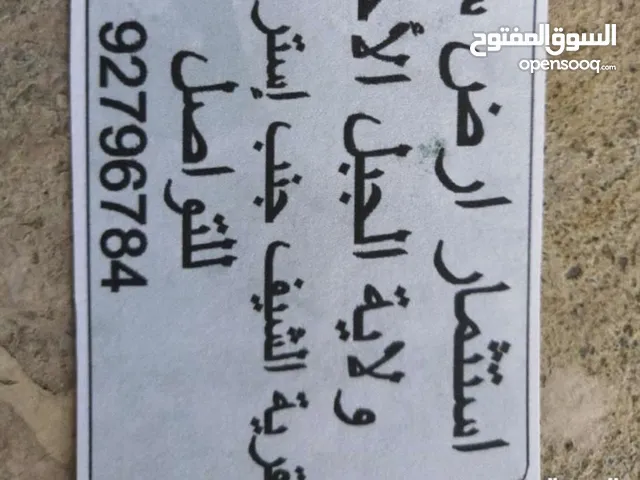 السوق المفتوح
opensooq.com
استثمار ارض
ولاية الجبل
قرية الشيف جنب
للتواصل
92796784